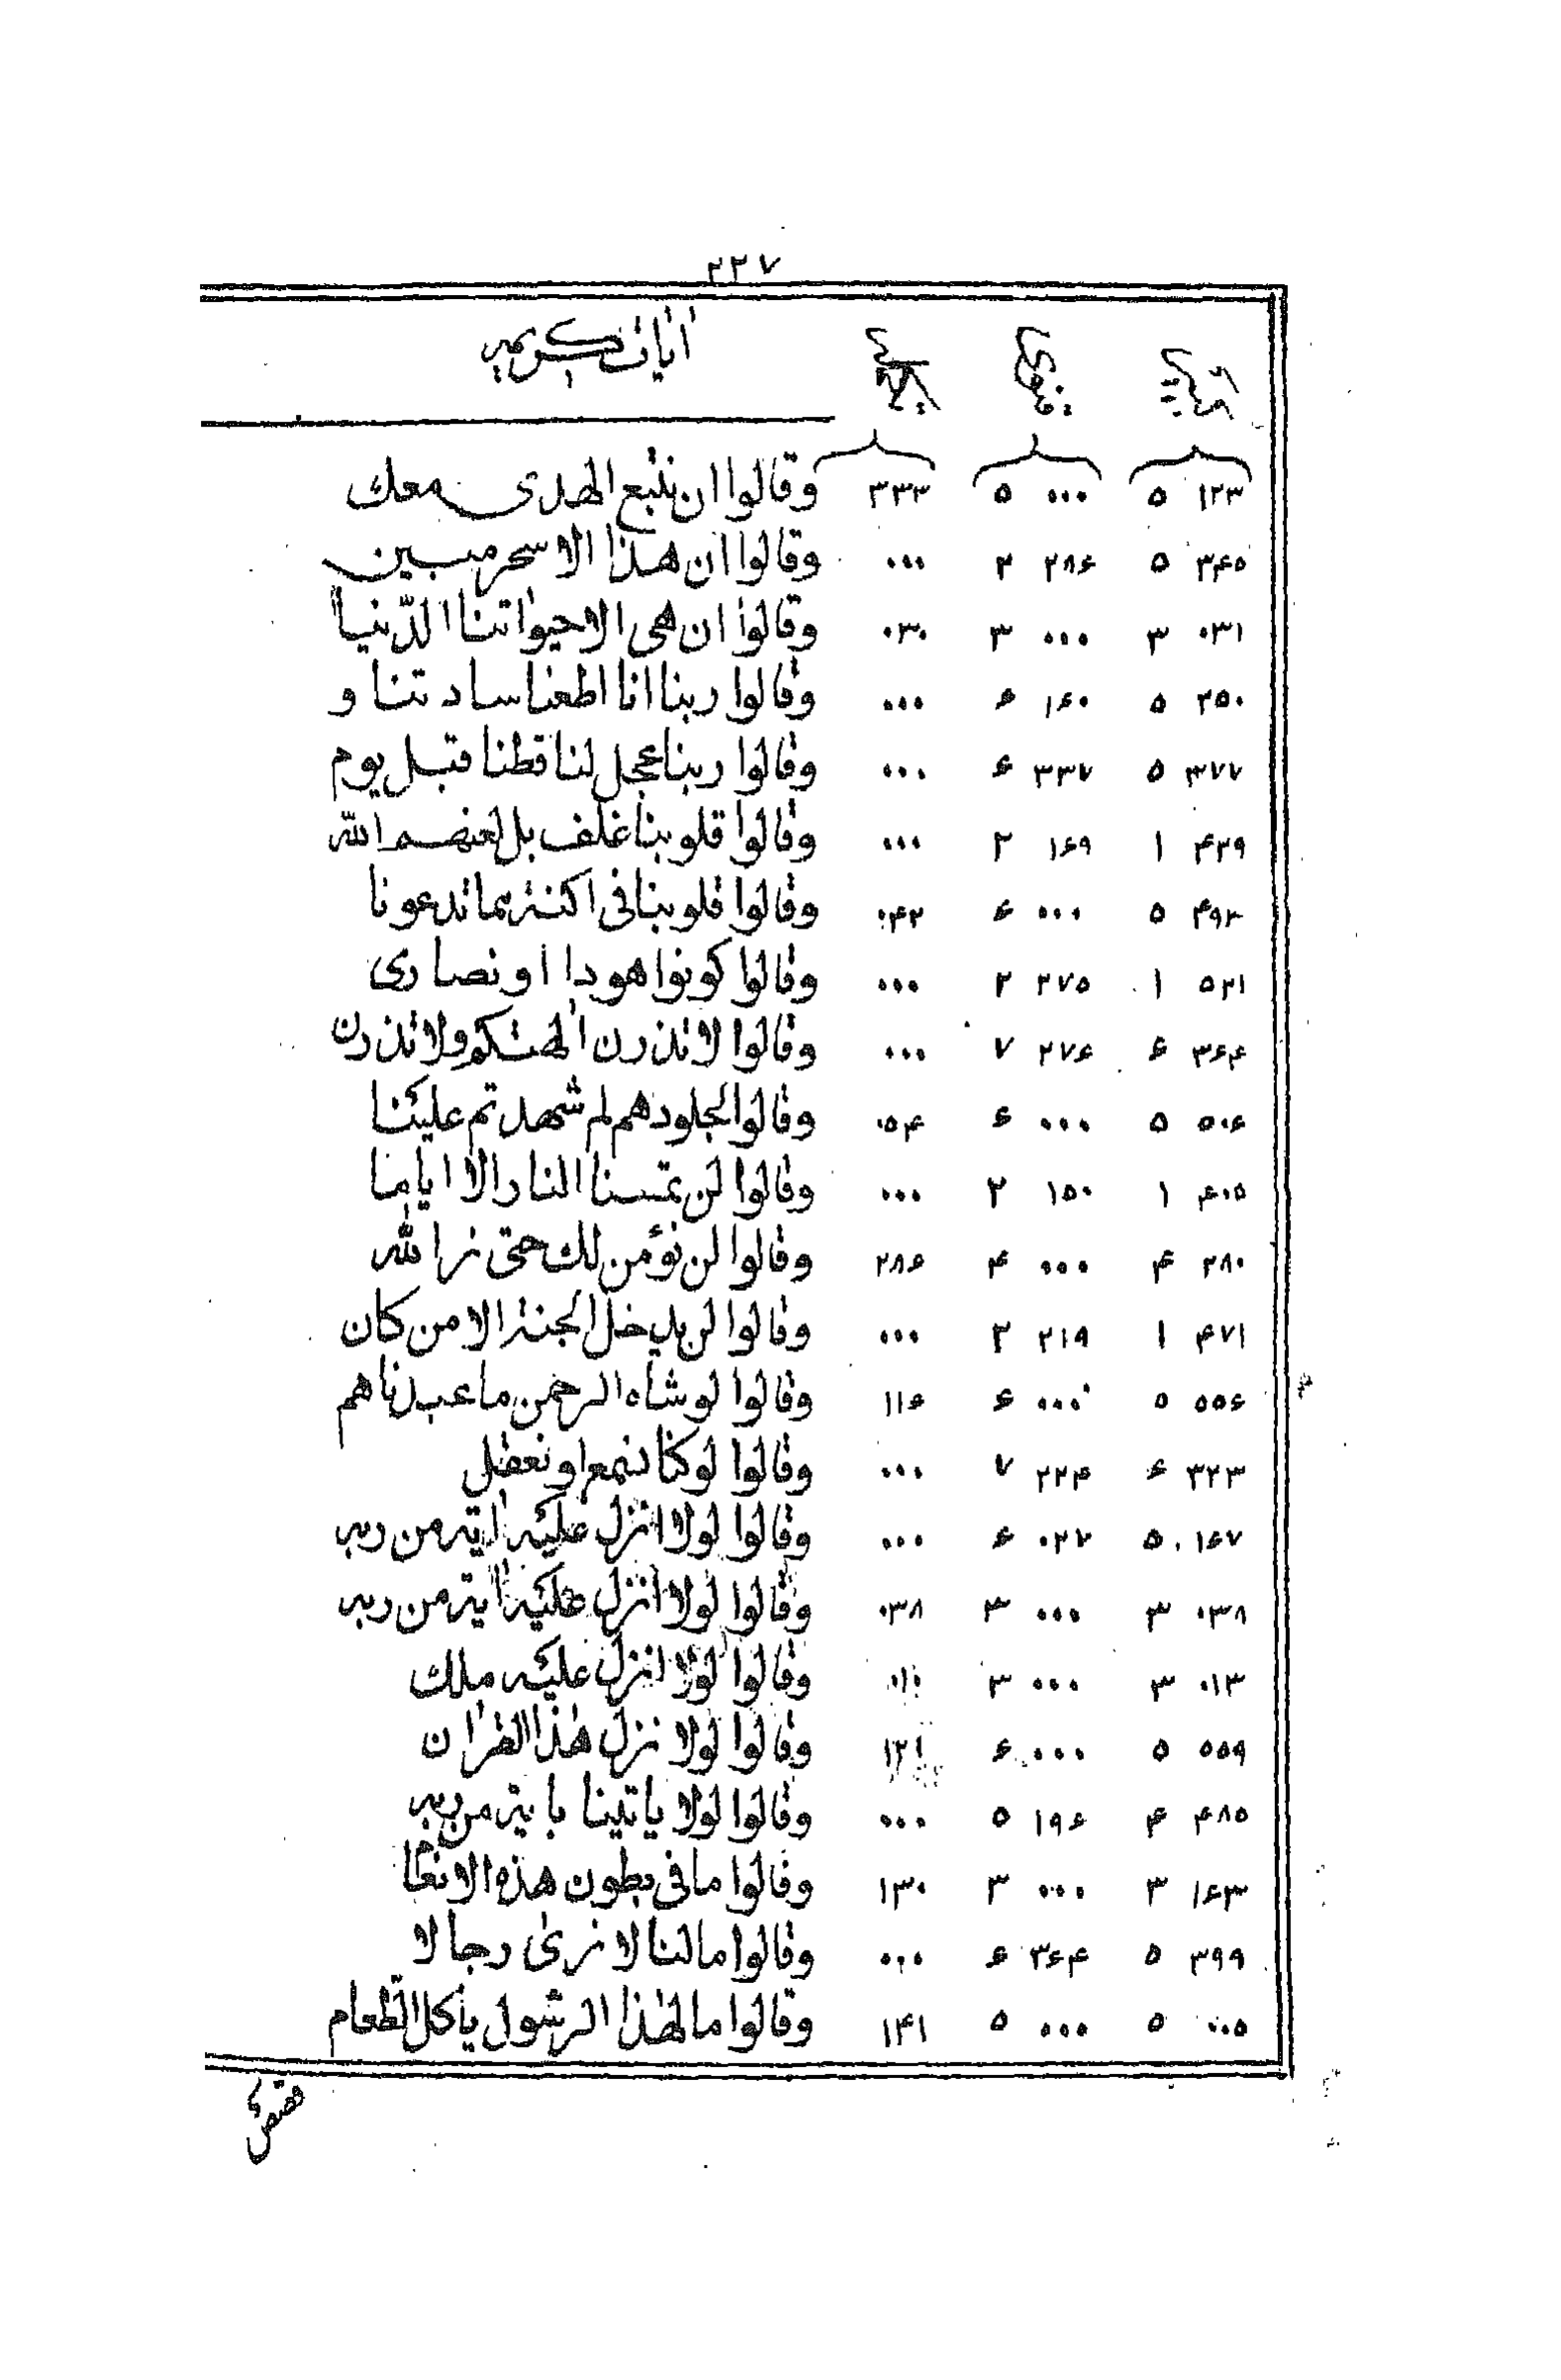 ٢٢٧
اٰیات کریمه
١٢٣ ٥ ٠٠٠ ٥ ٣٣٣ وقالوا ان نتبع الهدی معك
٣۴٥ ٥ ٢٨۶ ٢ ٠٠٠ وقالوا ان هذا الا سحر مبین
٠٣١ ٣ ٠٠٠ ٣ ٠٣٠ وقالوا ان هی الا حیواتنا الدّنیا
٢٥٠ ٥ ١۶٠ ۶ ٠٠٠ وقالوا ربنا انا اطعنا سادتنا و
٣٧٧ ٥ ٣٣٧ ۶ ٠٠٠ وقالوا ربنا عجل لنا قطنا قبل یوم
۴٣٩ ١ ١۶٩ ٢ ٠٠٠ وقالوا قلوبنا غلف بل لعنهم الله
۴٩٢ ٥ ٠٠٠ ۶ ٠۴٢ وقالوا قلوبنا فی اکنة مما تدعونا
٥٢١ ١ ٢٧٥ ٢ ٠٠٠ وقالوا کونوا هودا او نصاری
٣۶۴ ۶ ٢٧۶ ٧ ٠٠٠ وقالوا لا تذرن اٰلهتکم ولا تذرن
٥٠۶ ٥ ٠٠٠ ۶ ٠٥۴ وقالوا لجلودهم لم شهدتم علینا
۴٠٥ ١ ١٥٠ ٢ ٠٠٠ وقالوا لن تمسنا النار الا ایاما
٢٨٠ ۴ ٠٠٠ ۴ ٢٨۶ وقالوا لن نؤمن لك حتی نرا لله
۴٧١ ١ ٢١٩ ٢ ٠٠٠ وقالوا لن یدخل الجنة الا من کان
٥٥۶ ٥ ٠٠٠ ۶ ١١۶ وقالوا لو شاء الرحمن ما عبدناهم
٣٢٣ ۶ ٢٢۴ ٧ ٠٠٠ وقالوا لو کنا نسمع او نعقل
١۶٧ ٥ ٠٢٧ ۶ ٠٠٠ وقالوا لولا انزل علیه اٰیة من ربه
٠٣٨ ٣ ٠٠٠ ٣ ٠٣٨ وقالوا لولا انزل علیه اٰیة من ربه
٠١٣ ٣ ٠٠٠ ٣ ٠١٠ وقالوا لولا انزل علیه ملك
٥٥٩ ٥ ٠٠٠ ۶ ١٢١ وقالوا لولا نزل هٰذا القراٰن
۴٨٥ ۴ ١٩۶ ٥ ٠٠٠ وقالوا لولا یاتینا باٰیة من ربه
١۶٣ ٣ ٠٠٠ ٣ ١٣٠ وقالوا ما فی بطون هذه الانعام
٣٩٩ ٥ ٣۶۴ ۶ ٠٠٠ وقالوا مالنا لا نریٰ رجالا
٠٠٥ ٥ ٠٠٠ ٥ ١۴١ وقالوا مالهٰذا الرسول یاکل الطعام